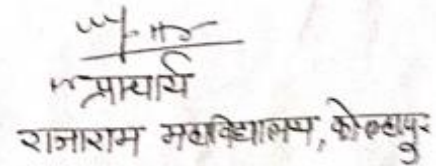 प्राचार्य
राजाराम महाविद्यालय, कोल्हापुर